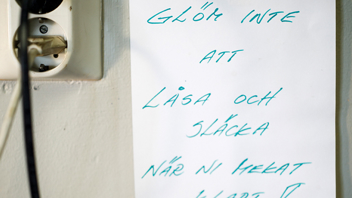 GLÖM INTE
ATT
LÅSA OCH
SLÄCKA
NÄR NI MEKAT
KLART !!